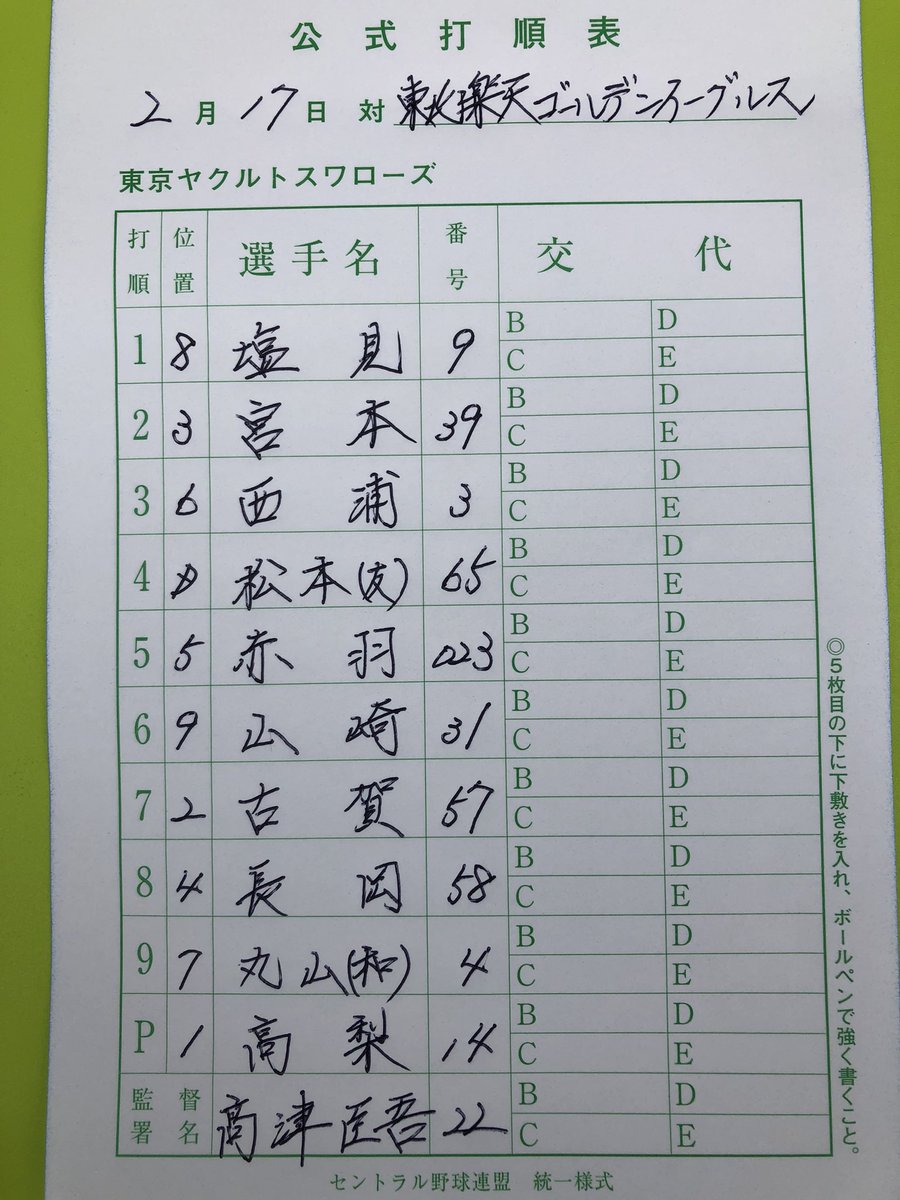 公式打順表
2月17日 対 東北楽天ゴールデンイーグルス
東京ヤクルトスワローズ
打順 位置 選手名 番号 交代
1 8 塩見 9 B D C E
2 3 宮本 39 B D C E
3 6 西浦 3 B D C E
4 D 松本(友) 65 B D C E
5 5 赤羽 023 B D C E
6 9 山崎 31 B D C E
7 2 古賀 57 B D C E
8 4 長岡 58 B D C E
9 7 丸山(和) 4 B D C E
P 1 高梨 14 B D C E
監督署名 高津臣吾 22 B D C E
◎5枚目の下に下敷きを入れ、ボールペンで強く書くこと。
セントラル野球連盟 統一様式